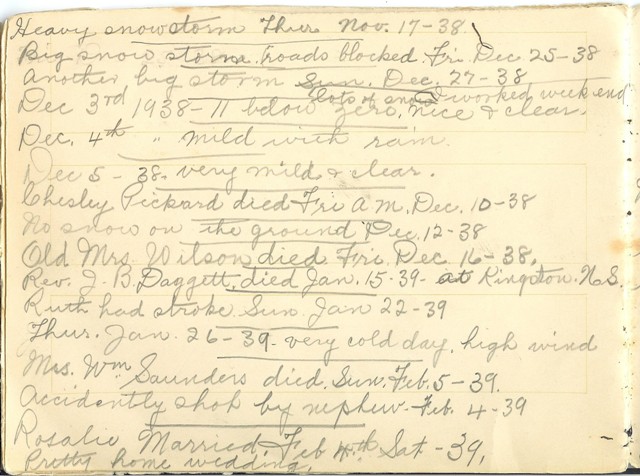 Heavy snowstorm Thur Nov. 17-38.
Big snow storm, roads blocked Fri Dec 25-38
Another big storm Sun. Dec. 27-38
lots of snow I worked week end
Dec 3rd 1938 - 11 below zero, nice & clear.
Dec. 4th " mild with rain.
Dec 5 - 38. very mild & clear.
Chesley Pickard died Fri a m. Dec. 10-38
No snow on the ground Dec. 12-38
Old Mrs. Wilson died Fri. Dec. 16-38.
Rev. J. B. Daggett, died Jan. 15-39- at Kingston. N.S.
Ruth had stroke Sun. Jan 22-39
Thur. Jan. 26-39- very cold day. high wind
Mrs. Wm Saunders died, Sun. Feb. 5-39.
Accidently shot by nephew- Feb. 4-39
Rosalie Married, Feb 4th Sat-39.
Pretty home wedding.